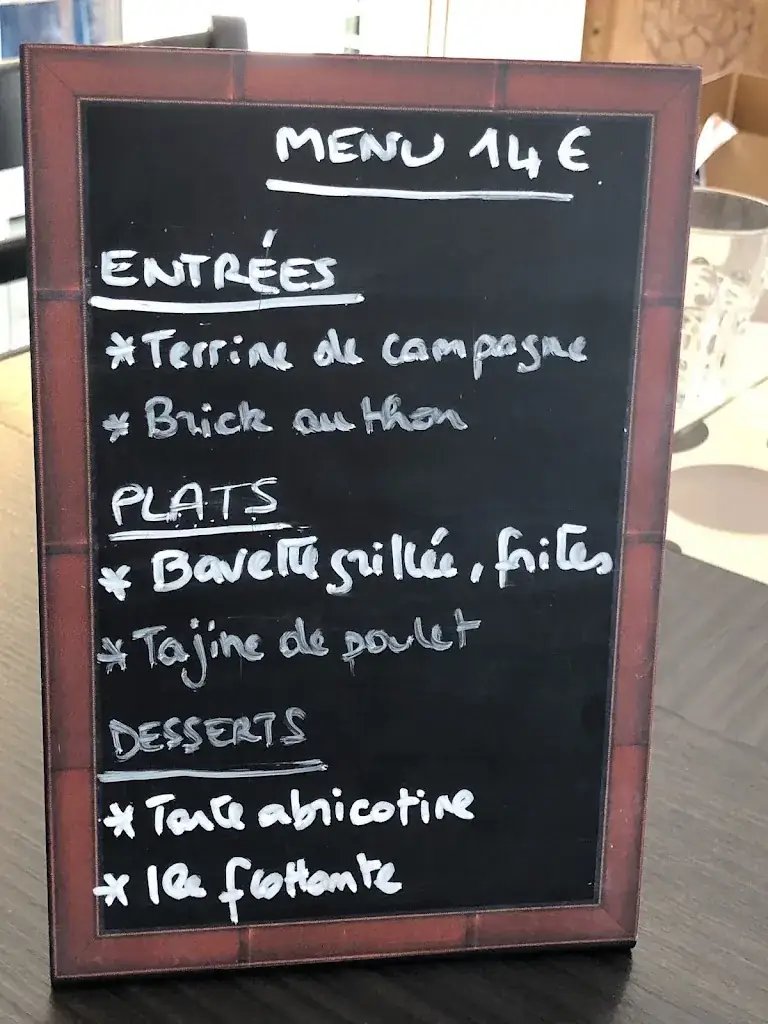 MENU 14 €
ENTRÉES
* Terrine de campagne
* Brick au thon
PLATS
* Bavette grillée, frites
* Tajine de poulet
DESSERTS
* Tarte abricotine
* Ile flottante